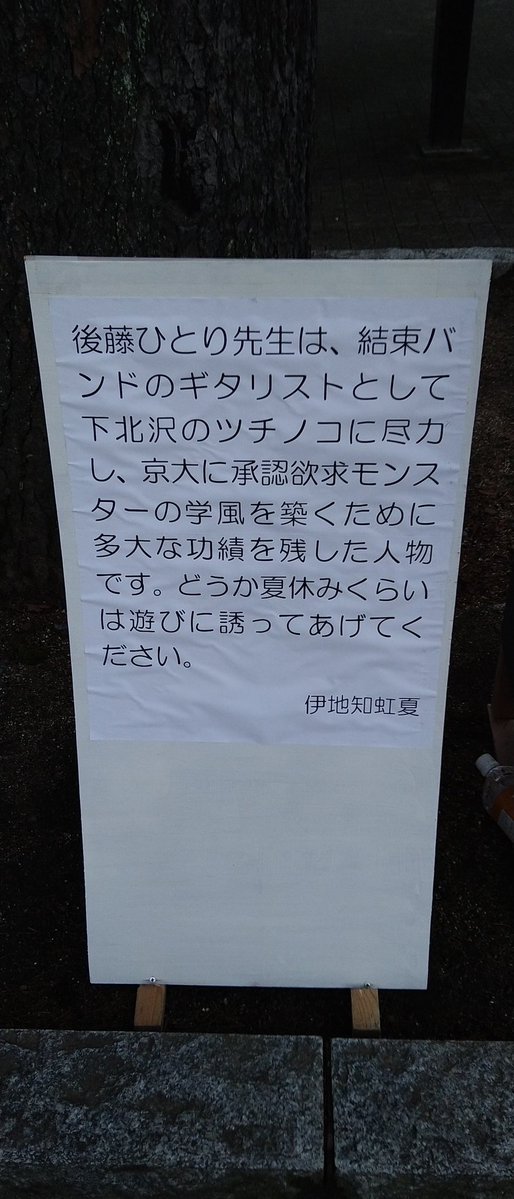 後藤ひとり先生は、結束バ
ンドのギタリストとして
下北沢のツチノコに尽力
し、京大に承認欲求モンス
ターの学風を築くために
多大な功績を残した人物
です。どうか夏休みくらい
は遊びに誘ってあげてく
ださい。
伊地知虹夏